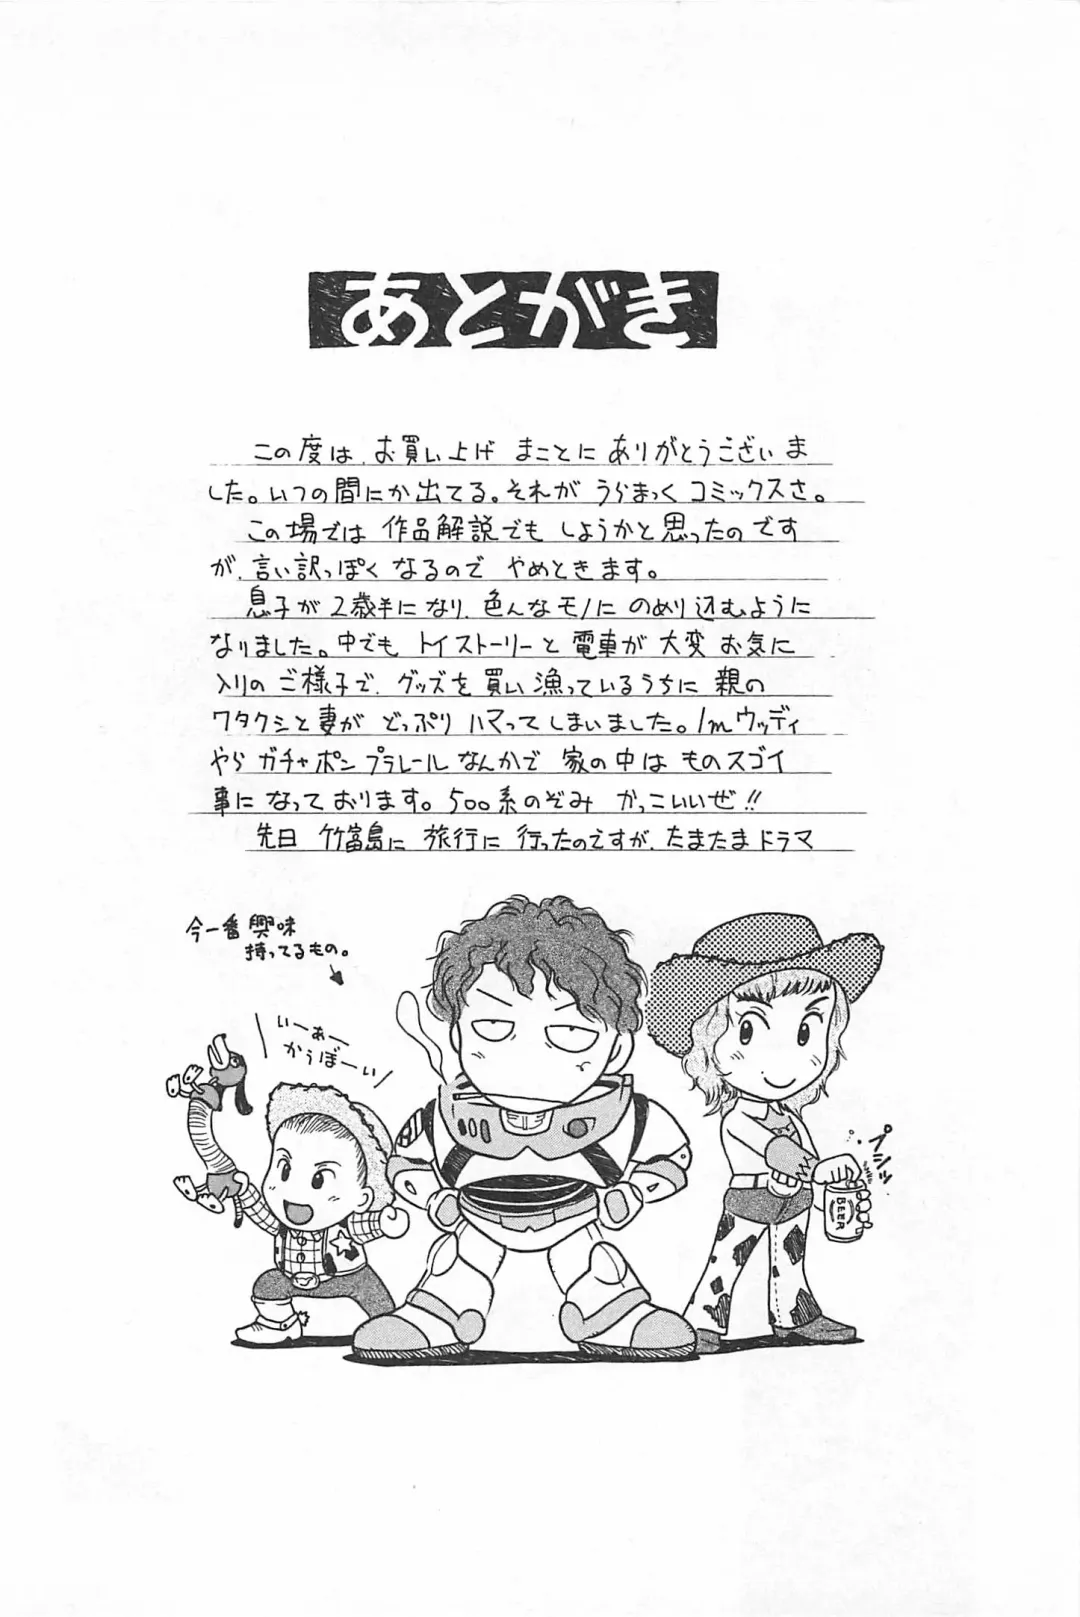 あとがき
この度は、お買い上げ まことに ありがとうございま
した。いつの間にか出てる。それが うらまっく コミックスさ。
この場では 作品解説でも しようかと思ったのです
が、言い訳っぽく なるので やめときます。
息子が 2歳半になり、色んなモノに のめり込むように
なりました。中でも トイストーリーと 電車が 大変 お気に
入りの ご様子で、グッズを 買い漁っているうちに 親の
ワタクシと妻が どっぷり ハマってしまいました。1mウッディ
やら ガチャポン プラレール なんかで 家の中は ものスゴイ
事に なっております。500系のぞみ かっこいいぜ!!
先日 竹富島に 旅行に 行ったのですが、たまたま ドラマ
今一番 興味
持ってるもの。
いーぁー
かぅぼーい
プシッ
BEER